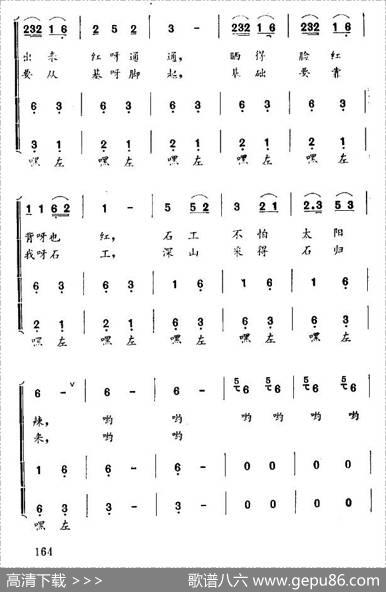 232 1 6 | 2 5 2 | 3 - | 232 1 6 | 232 1 6
出来 红呀通 通, 晒得 脸红
要从 基呀脚 起, 基础 要靠
6 3 | 6 3 | 6 3 | 6 3 | 6 3
3 1 | 2 1 | 2 1 | 2 1 | 2 1
嘿左 嘿左 嘿左 嘿左 嘿左
1 1 6 2 | 1 - | 5 5 2 | 3 2 1 | 2.3 5 3
背呀也 红, 石工 不怕 太阳
我呀石 工, 深山 采得 石归
6 3 | 6 3 | 1 6 | 1 6 | 1 6
2 1 | 2 1 | 6 3 | 6 3 | 6 3
嘿左 嘿左 嘿左 嘿左 嘿左
6 - ∨ | 6 - | 6 - | 5 6 5 6 | 5 6 5 6
辣, 哟 哟 哟 哟 哟 哟
来, 哟 哟
1 6 | 6 - | 6 - | 0 0 | 0 0
6 3 | 3 - | 3 - | 0 0 | 0 0
嘿左
164
高清下载 >>>
歌谱八六 www.gepu86.com